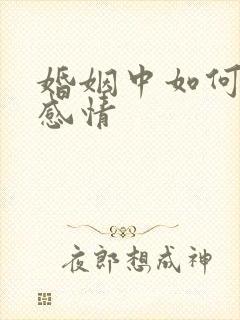 婚姻中如何
感情
夜郎想成神